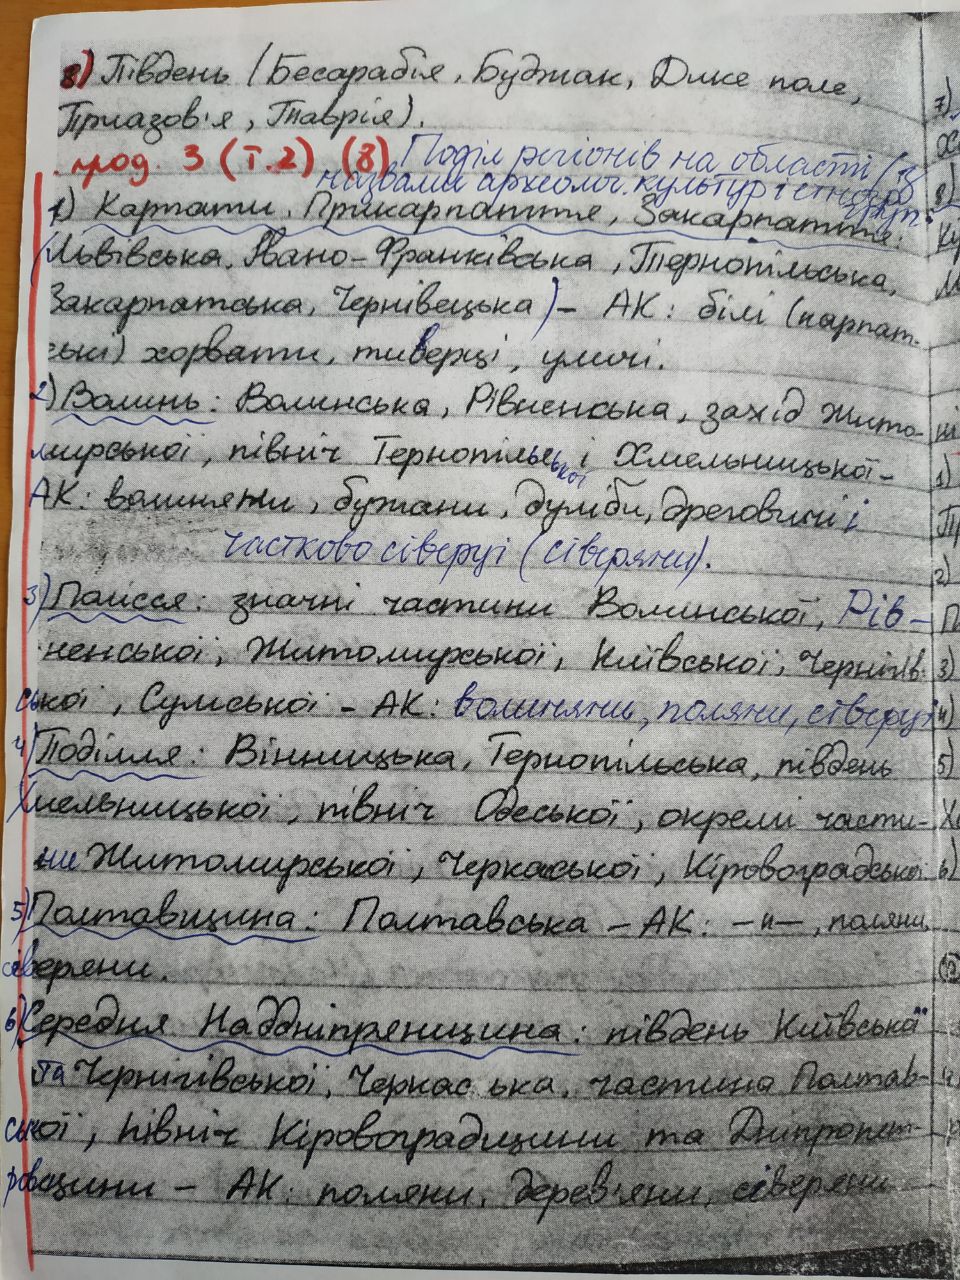 8) Південь (Бесарабія, Буджак, Дике поле,
Приазов'я, Таврія).
прод. 3 (т.2) (8) Поділ регіонів на області (з
назвами археолог. культур і етногр.
груп.
1) Карпати, Прикарпаття, Закарпаття:
(Львівська, Івано-Франківська, Тернопільська,
Закарпатська, Чернівецька) – АК: білі (карпат-
ські) хорвати, тиверці, уличі.
2) Волинь: Волинська, Рівненська, захід Жито-
мирської, північ Тернопільської і Хмельницької –
АК: волиняни, бужани, дуліби, дреговичі і
частково сіверці (сіверяни).
3) Полісся: значні частини Волинської, Рів-
ненської, Житомирської, Київської, Чернігів-
ської, Сумської – АК: волиняни, поляни, сіверці
4) Поділля: Вінницька, Тернопільська, південь
Хмельницької, північ Одеської, окремі части-
ни Житомирської, Черкаської, Кіровоградської
5) Полтавщина: Полтавська – АК: –н–, поляни,
сіверяни.
6) Середня Наддніпрянщина: південь Київської
та Чернігівської, Черкаська, частина Полтав-
ської, північ Кіровоградщини та Дніпропет-
ровщини – АК: поляни, дерев'яни, сіверяни